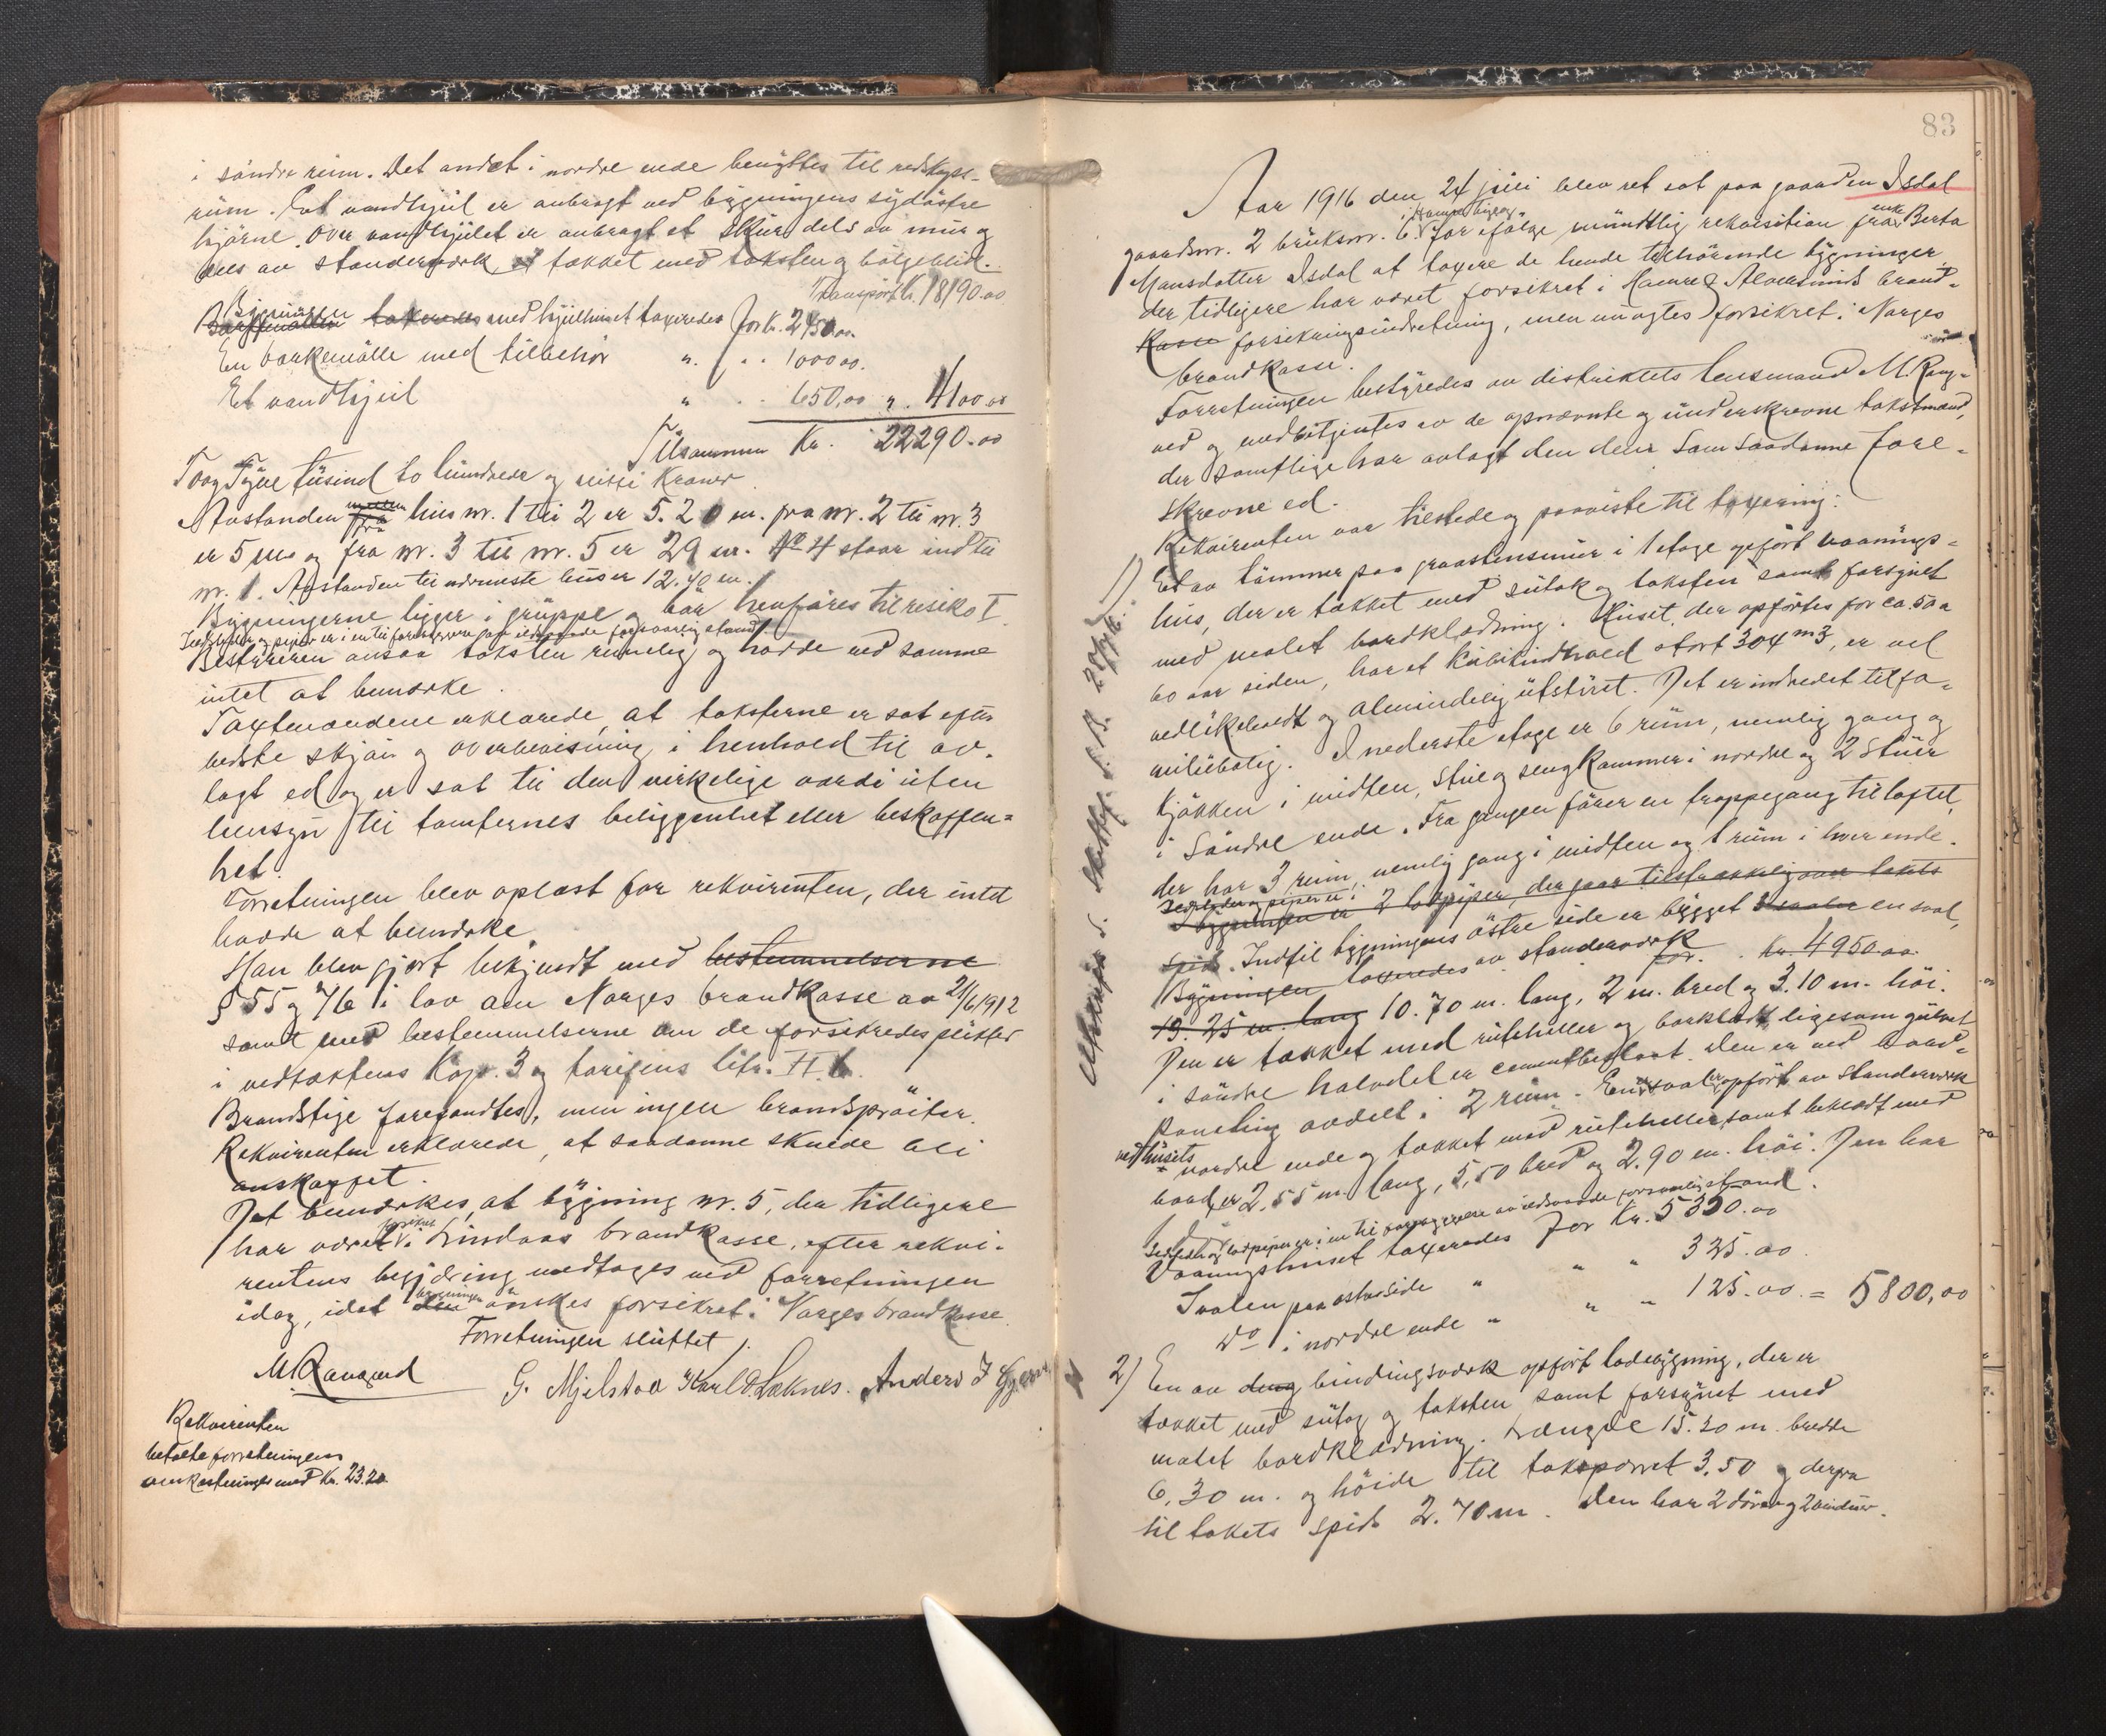 i söndre rum. Det andet i nordre ende benyttes til redskaps-
rum. Et vandhjul er anbragt ved bygningens sydöstre
hjörne. Over vandhjulet er anbragt et skur dels av mur og
dels av standerverk og tækket med taksten og bölgeblik.
Transport kr. 18190.00
Bygningen med hjulhuset taxeredes for kr. 2450.00
En barkemölle med tilbehör " " 1000.00.
Et vandhjul " " 650,00 " 4100.00
Tilsammen Kr. 22290.00
Toog Tyve tusind to hundrede og nitti Kroner.
Avstanden mellem hus nr. 1 til 2 er 5.20 m. fra nr. 2 til nr. 3
er 5 m. og fra nr. 3 til nr. 5 er 29 m. No 4 staar ind til
nr. 1. Avstanden til nærmeste hus er 12.40 m.
Bygningerne ligger i gruppe og bör henföres til risiko I.
Ildsteder og piper er i en til forebyggelse av ildsvaade forsvarlig stand
Bestyreren ansaa taksten rimelig og havde ved samme
intet at bemerke.
Taxtmændene erklærede, at taksterne er sat efter
bedste skjön og overbevisning i henhold til av-
lagt ed og er sat til den virkelige værdi uten
hensyn til tomternes beliggenhet eller beskaffen-
het.
Forretningen blev oplæst for rekvirenten, der intet
havde at bemerke.
Han blev gjort bekjendt med bestemmelserne
§ 55 og 76 i lov om Norges brandkasse av 21/6 1912
samt med bestemmelserne om de forsikredes plikter
i vedtektens Kap. 3 og tarifens litr. H. b.
Brandstige forefandtes, men ingen brandspröiter.
Rekvirenten erklærede, at saadanne skulde bli
anskaffet.
Det bemerkes, at bygning nr. 5, der tidligere
har været forsikret i Lindaas brandkasse, efter rekvi-
rentens begjæring medtages ved forretningen
idag, idet bygningen önskes forsikret i Norges brandkasse.
Forretningen sluttet.
M. Rangved G. Mjelstad Karl O. Loknes. Anders I
Rekvirenten
betalte forretningens
omkostninger med Kr. 23.20
83
Aar 1916 den 24 juli blev ret sat paa gaarden Isdal
gaardsnr. 2 bruksnr. 6 i Hamre tinglag for ifölge mundtlig rekvisition fra enke Berta
Monsdatter Isdal at taxere de hende tilhörende bygninger,
der tidligere har været forsikret i Hamre & Alversunds brand-
Kasse forsikringsindretning, men nu agtes forsikret i Norges
brandkasse.
Forretningen bestyredes av distriktets lensmand M. Rang-
ved og medbetjentes av de opnævnte og underskrevne takstmænd,
der samtlige har avlagt den dem som saadanne fore-
skrevne ed.
Rekvirenten var tilstede og paaviste til taxering:
1) Et av tömmer paa graastensmur i 1 etage opfört vaanings-
hus, der er tækket med sutak og taksten samt forsynet
med malet bordklædning. Huset, der opförtes for ca. 50 a
60 aar siden, har et kubikindhold stort 304 m3, er vel
vedlikeholdt og almindelig utstyret. Det er indredet til fa-
miliebolig. I nederste etage er 6 rum, nemlig gang og
kjökken i midten, stue og sengkammer i nordre og 2 Stuer
i Söndre ende. Fra gangen förer en trappegang til loftet,
der har 3 rum, nemlig gang i midten og 1 rum i hver ende.
Ildsteder og piper er i
I bygningen er 2 lodpiper, der gaar tilstrækkelig over takets
spids. Indtil bygningens östre side er bygget en sval,
Bygningen taxeredes av standerverk for Kr. 4950.00
19.25 m. lang 10.70 m. lang, 2 m. bred og 3.10 m. höi.
Den er tækket med ruteheller og bordklædt, ligesom gulvet
i söndre halvdel er cementbeslaat. Den er ved bord-
paneling avdelt i 2 rum. En sval er opfört av standerverk
ved husets nordre ende og tækket med rutehelle samt beklædt med
bord, er 2,55 m. lang, 5,50 bred og 2.90 m. höi. Den har
1 dör.
Ildsteder og lodpiper er i en til forebyggelse av ildsvaade forsvarlig stand.
Vaaningshuset taxeredes for Kr. 5350.00
Svalen paa østre side " " " 325.00
Do i nordre ende " " " 125.00 = 5800,00
2) En av bindingsverk opfört ladebygning, der er
tækket med sutag og taksten samt forsynet med
malet bordklædning. Længde 15.30 m. bredde
6,30 m. og höide til taksparret 3.50 og derfra
til takets spids 2.70 m. Den har 2 dörer og 2 vinduer.